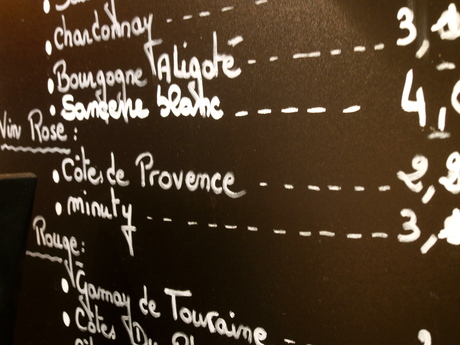 • chardonnay - - - - - 3,
• Bourgogne Aligoté - - - - -
• Sancerre blanc - - - - - 4,
Vin Rosé :
• Côtes de Provence - - - - - - 2,2
• minuty - - - - - - - - - - 3,
Rouge :
• Gamay de Touraine - -
• Côtes Du